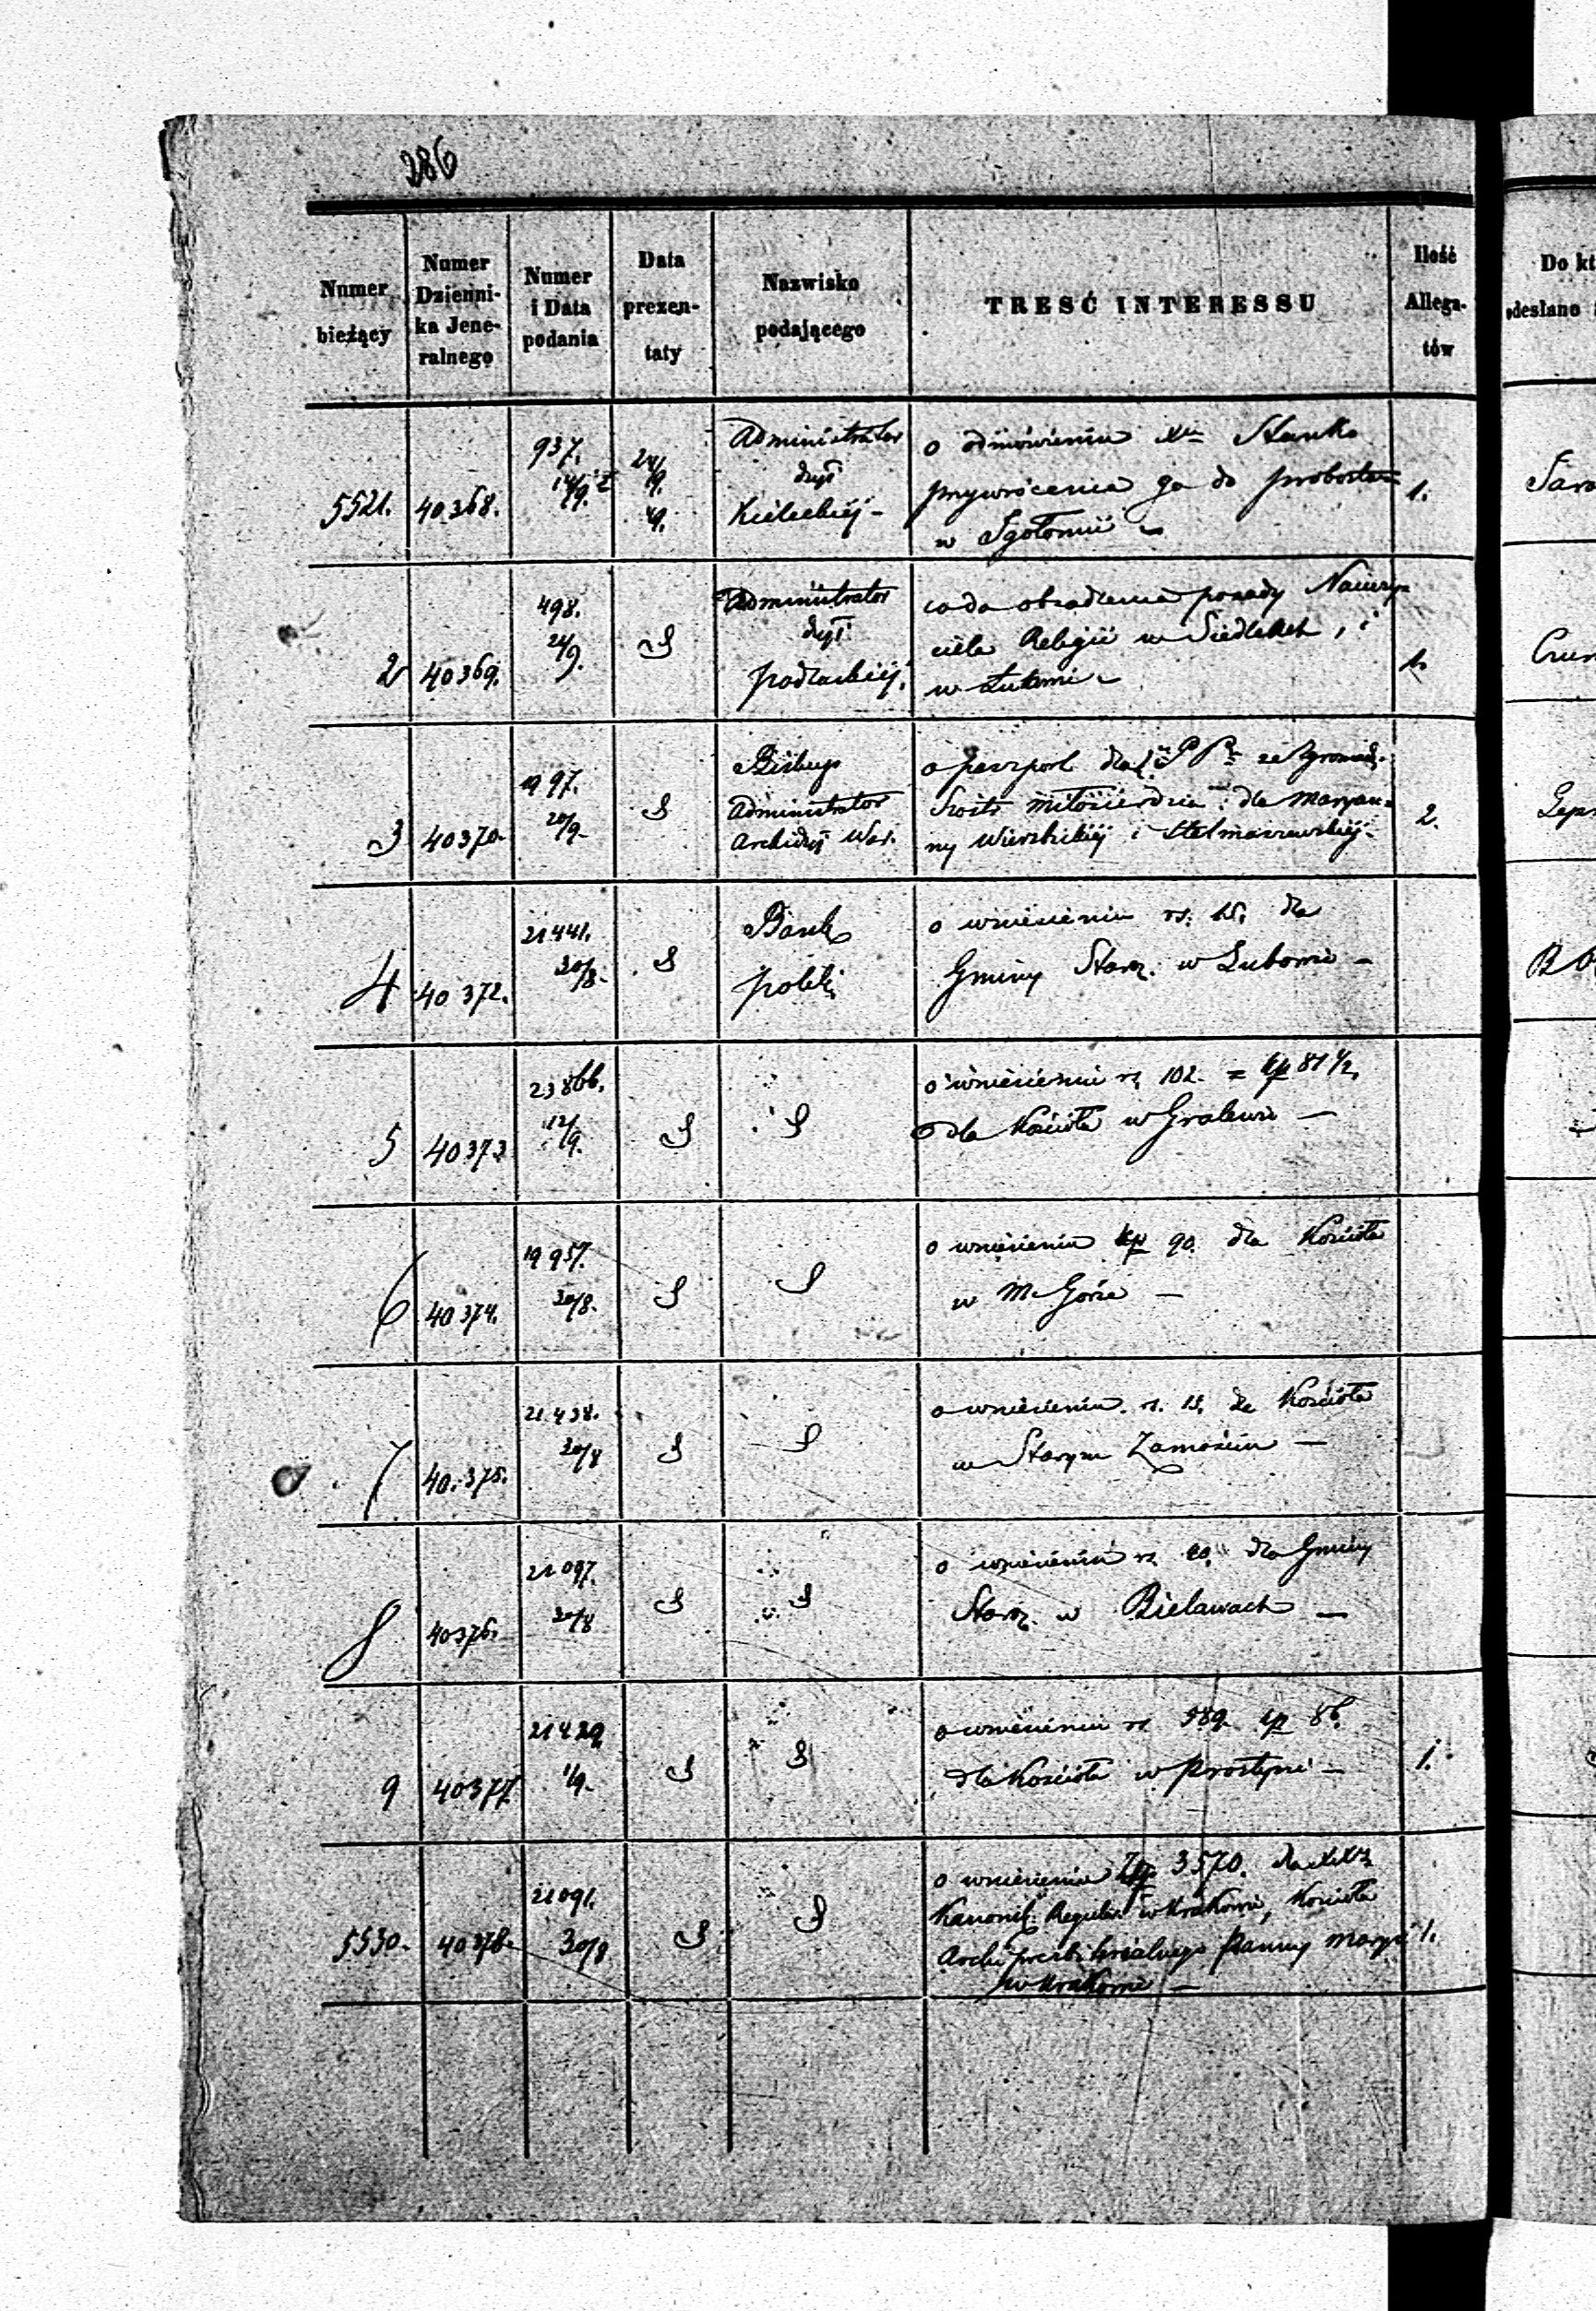 286
Numer bieżący | Numer Dziennika Jeneralnego | Numer i Data podania | Data prezentaty | Nazwisko podającego | TRESĆ INTERESSU | Ilość Allegatów | Do kt
odesłano
5521. | 40368. | 937. 14/9. | 24/9. | Administrator
dyi
Kieleckiéj - | o odmówieniu Xu Stanko
przywrócenia go do probostwa
w Igołomii | 1.
2 | 40369. | 498. 24/9. | S | Administrator
dyi
podlaskiéj. | co do obsadzenia posady Nauczy=
ciela Religii w Siedlcach, i
w Łukowie - | 1.
3 | 40370. | 1997. 20/9. | S | Biskup
Administrator
Archidyi War. | o paszport dla PP ze Zgromadz.
Sióstr Miłosierdzia: dla Maryan=
ny Wierzbickiéj i Stelmaszewskiéj - | 2.
4 | 40372. | 21441. 30/8. | S | Bank
polski | o wniesieniu rs. 15. dla
Gminy Staroz. w Lubomi -
5 | 40373 | 23866. 12/9. | S | S | o wniesieniu rs. 102. = kp 81 1/2.
dla Kościoła w Gralewie -
6 | 40374. | 19957. 30/8. | S | S | o wniesieniu kp 90. dla Kościoła
w M. Górze -
7 | 40375. | 21438. 30/8 | S | S | o wniesieniu rs. 15. dla Kościoła
w Starym Zamościu -
8 | 40376. | 21097. 30/8 | S | S | o wniesieniu rs. dla Gminy
Staroz. w Bielawach -
9 | 40377 | 21429. 1/9. | S | S | o wniesieniu rs. 589. kp 86.
dla Kościoła w Prostyni - | 1.
5530. | 40378. | 21091. 30/8 | S | S | o wniesieniu Złp. 3570. dla XX.
Kanonik. Regular. w Krakowie, Kościoła
Archiprezbiterialnego Panny Maryi
w Krakowie - | 1.